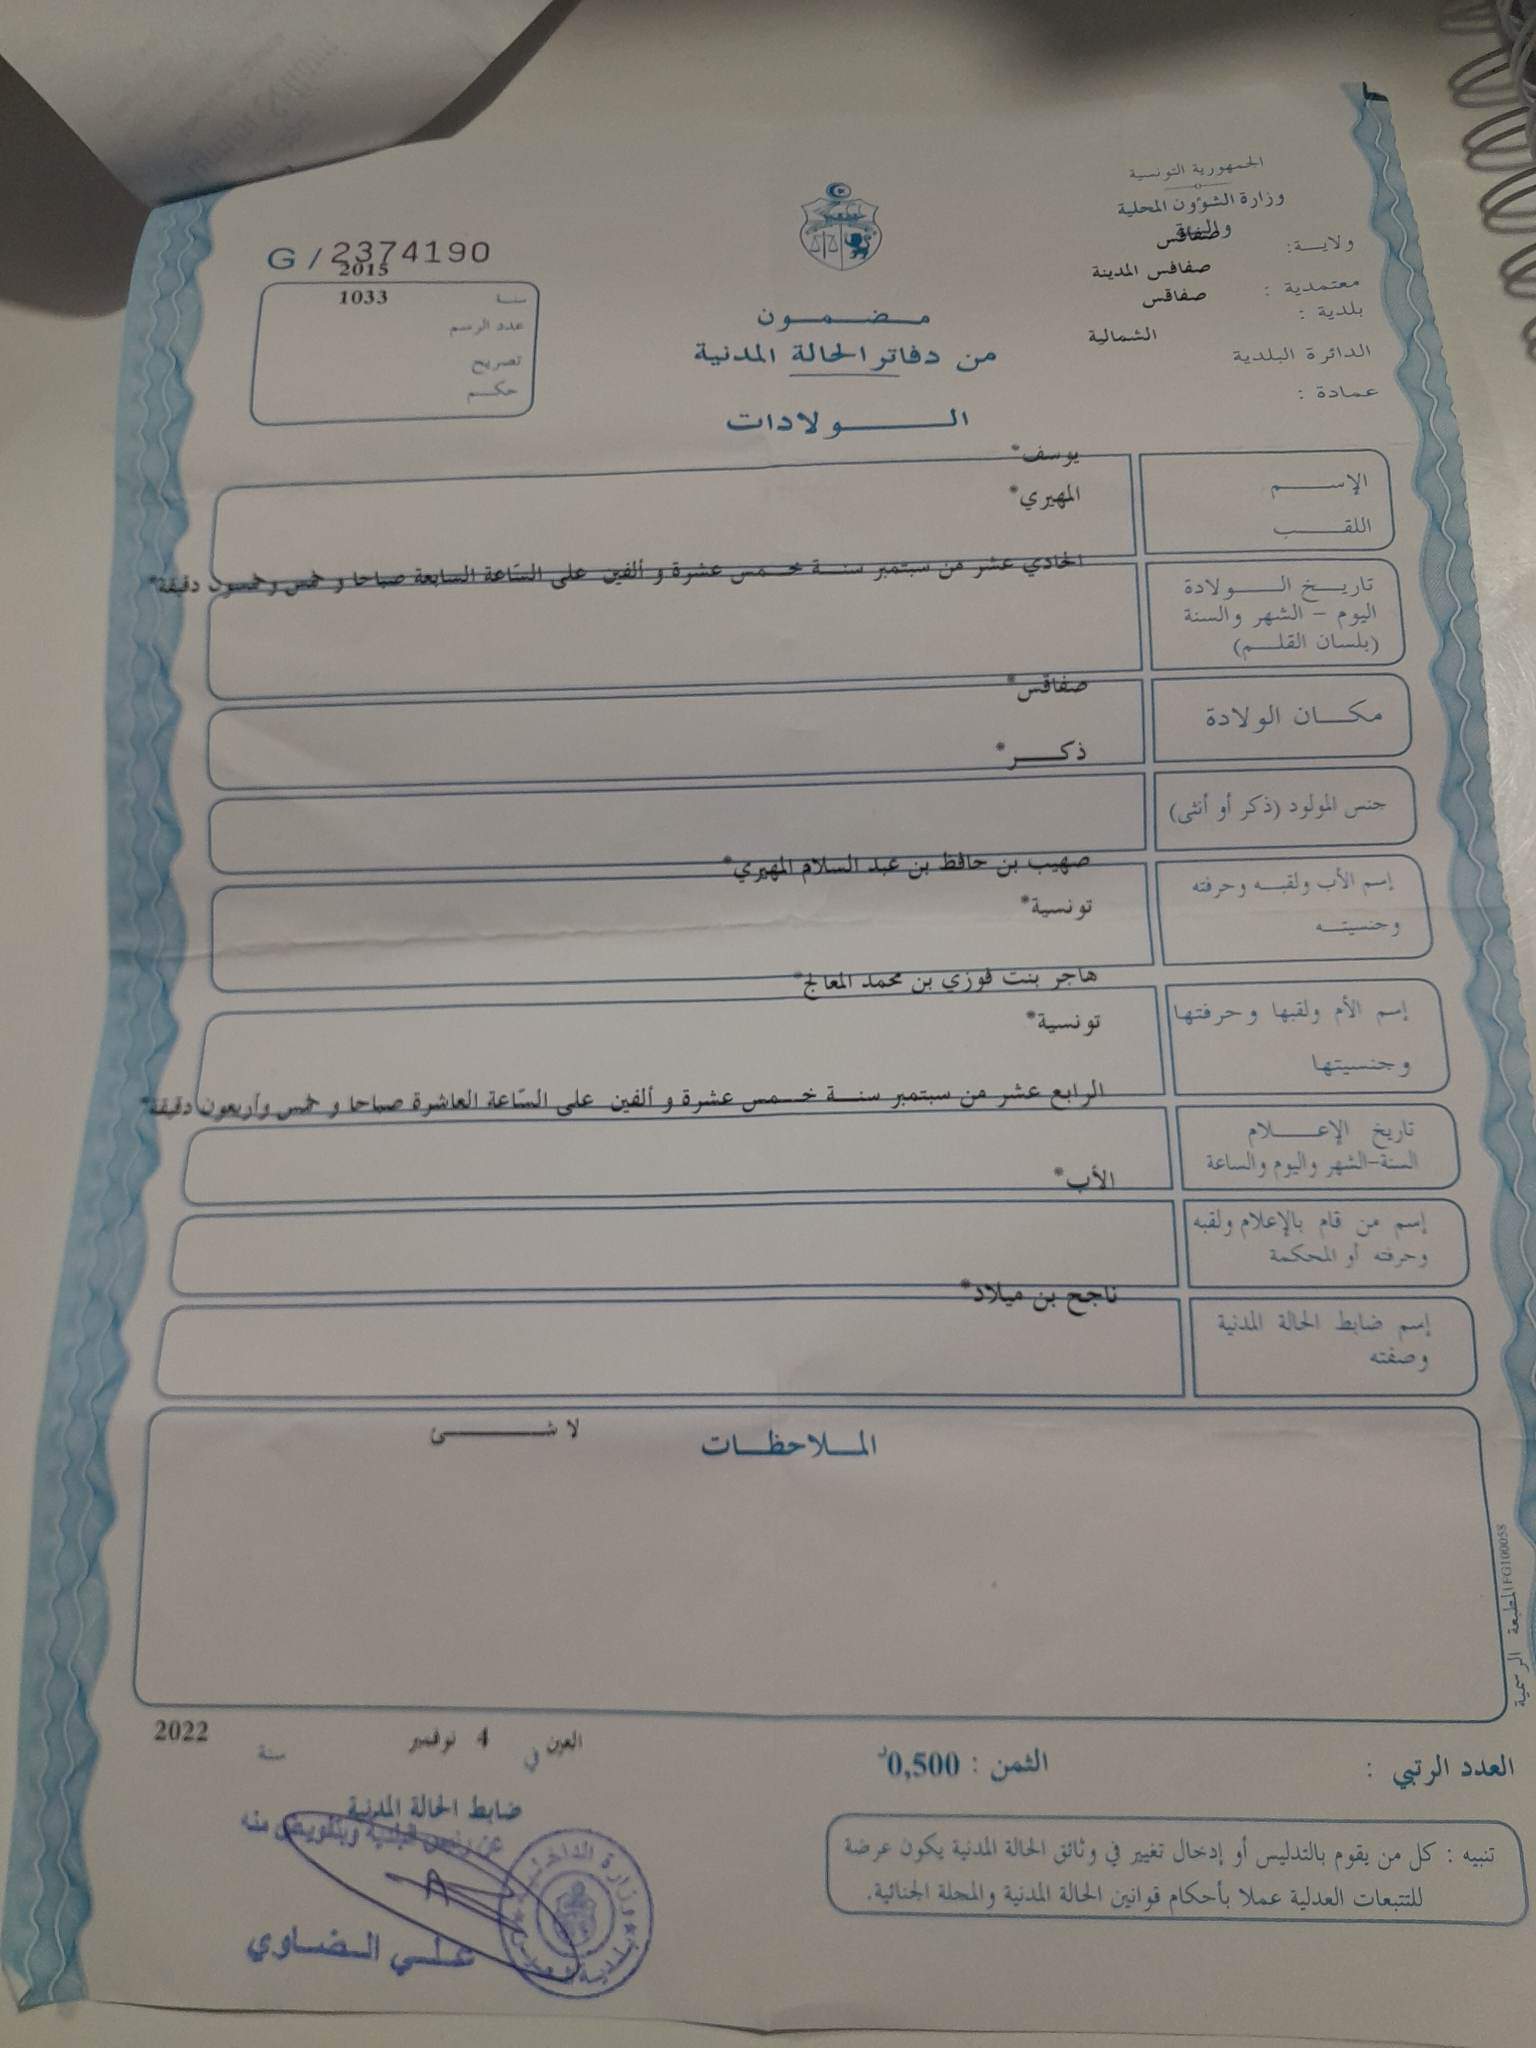 الجمهورية التونسية
وزارة الشؤون المحلية
والبيئة
ولاية: صفاقس
معتمدية : صفاقس المدينة
بلدية : صفاقس
الدائرة البلدية الشمالية
عمادة :
G / 2374190
سنة 2015
عدد الرسم 1033
تصريح
حكم
مضمون
من دفاتر الحالة المدنية
الولادات
الإسم يوسف*
اللقب المهيري*
تاريخ الولادة
اليوم - الشهر والسنة
(بلسان القلم)
الحادي عشر من سبتمبر سنة خمس عشرة و ألفين على السّاعة السابعة صباحا و خمس وخمسون دقيقة*
مكان الولادة صفاقس*
جنس المولود (ذكر أو أنثى) ذكر*
إسم الأب ولقبه وحرفته
وجنسيته
صهيب بن حافظ بن عبد السلام المهيري*
تونسية*
إسم الأم ولقبها وحرفتها
وجنسيتها
هاجر بنت فوزي بن محمد المعالج*
تونسية*
تاريخ الإعلام
السنة-الشهر واليوم والساعة
الرابع عشر من سبتمبر سنة خمس عشرة و ألفين على السّاعة العاشرة صباحا و خمس وأربعون دقيقة*
إسم من قام بالإعلام ولقبه
وحرفته أو المحكمة
الأب*
إسم ضابط الحالة المدنية
وصفته
ناجح بن ميلاد*
الملاحظات
لا شئ
المطبعة الرسمية FG100058
العدد الرتبي :
الثمن : 0,500د
العين في 4 نوفمبر سنة 2022
ضابط الحالة المدنية
عن رئيس البلدية وبتفويض منه
علي الضاوي
وزارة الداخلية
بلدية صفاقس
تنبيه : كل من يقوم بالتدليس أو إدخال تغيير في وثائق الحالة المدنية يكون عرضة
للتتبعات العدلية عملا بأحكام قوانين الحالة المدنية والمجلة الجنائية.